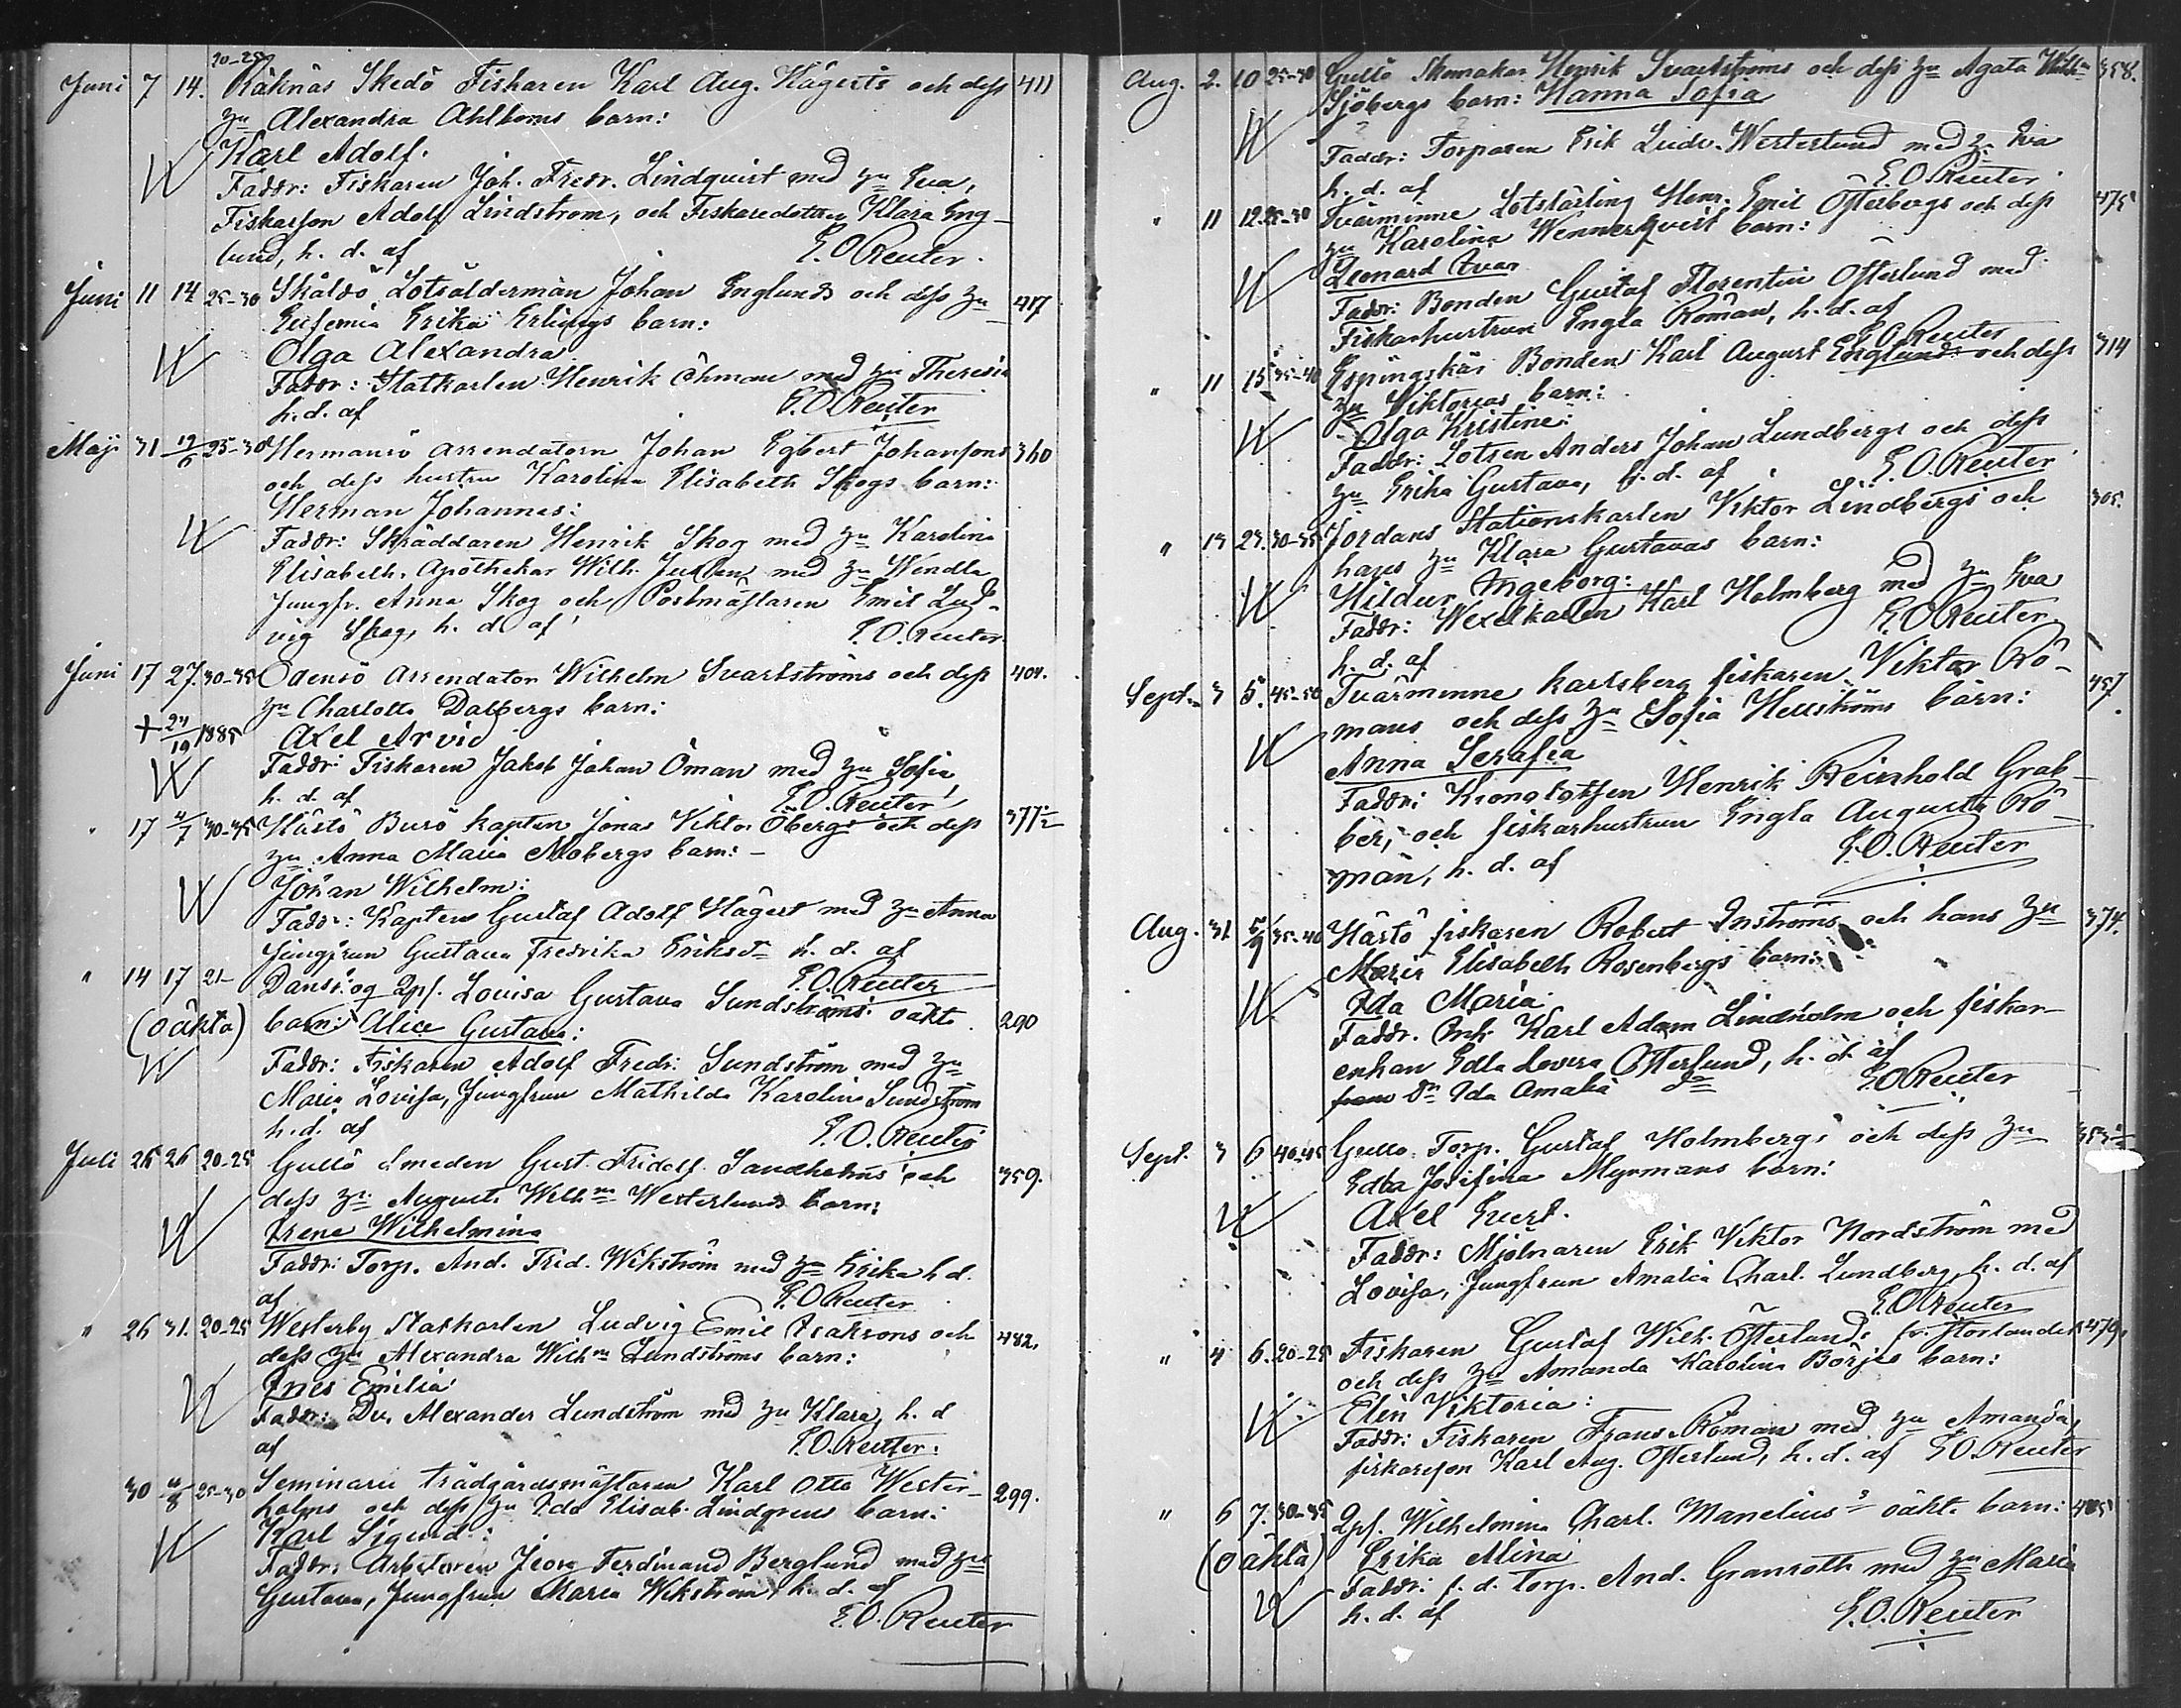 20-25
Juni 7 14. Räknäs Skedö Fiskaren Karl Aug. Hägerts och dess 411
hu Alexandra Ahlboms barn:
Karl Adolf.
Faddr: Fiskaren Joh. Fredr. Lindquist med hu Eva,
Fiskarson Adolf Lindström, och Fiskaredottren Klara Eng-
lund, h. d. af E. O. Reuter.
Juni 11 14 25-30 Skåldö Lotsåldermän Johan Englunds och dess hu 417
Eufemia Erika Erlings barn:
Olga Alexandra
Faddr: Statkarlen Henrik Öhman med hu Theresia
h. d. af E. O. Reuter
Maji 31 12/6 25-30 Hermansö Arrendatorn Johan Egbert Johansons 360
och dess hustru Karolina Elisabeth Skogs barn:
Herman Johannes:
Faddr: Skräddaren Henrik Skog med hu Karolina
Elisabeth, Apothekar Wilh. med hu Wendla
Jungfr. Anna Skog och Postmästaren Emil Lud-
vig Skog, h. d. af E. O. Reuter.
Juni 17 27. 30-35 Odensö Arrendator Wilhelm Svartströms och dess 404.
hu Charlotta Dalbergs barn:
+ 24/10 1885 Axel Arvid
Faddr: Fiskaren Jakob Johan Öman med hu Sofia,
h. d. af E. O. Reuter
" 17 4/7 30-35 Hästö Busö Kapten Jonas Viktor Öbergs och dess 377 1/2
hu Anna Maria Mobergs barn:-
Johan Wilhelm:
Faddr: Kapten Gustaf Adolf Hägert med hu Anna
Jungfrun Gustava Fredrika Eriksdr h. d. af
E. O. Reuter
" 14 17 21- Dansk. og Qps. Lovisa Gustava Sundströms oäkta
(oäkta) barn: Alice Gustava: 290
Faddr: Fiskaren Adolf Fredr. Sundström med hu
Maria Lovisa, Jungfrun Mathilda Karolina Sundström
h. d. af E. O. Reuter
Juli 26 26 20-25 Gullö Smeden Gust. Fridolf Sandholms och 359.
dess hu Augusta Wilhma Westerlunds barn:
Irene Wilhelmina
Faddr: Torp. And. Frid. Wikström med hu Erika h d.
af E. O. Reuter
" 26 31. 20-25 Westerby Statkarlen Ludvig Emil Isaksons och 482.
dess hu Alexandra Wilhma Lundströms barn:
Ines Emilia
Faddr: Dr. Alexander Lundström med hu Klara, h. d
af E. O. Reuter.
30 4/8 25-30 Seminarii trädgårdsmästaren Karl Otto Wester- 299.
holms och dess hu Ida Elisab. Lindgrens barn:
Karl Sigurd:
Faddr: Arbetaren Jeorg Ferdinand Berglund med hu
Gustava, Jungfrun Maria Wikström, h. d. af
E. O. Reuter
Aug. 2. 10 25-30 Gullö Skomakar Henrik Svartströms och dess hu Agata Wilhma 358.
Sjöbergs barn: Hanna Sofia
Faddr: Torparen Erik Ludv. Westerlund med hu Eva
h. d. af E. O. Reuter
" 11 12. 25-30 Tvärminne Lotslärling Henr. Emil Österbergs och dess 475
hu Karolina Wennerqvist barn:
Leonard Ivar
Faddr: Bonden Gustaf Florentin Österlund med
Fiskarhustrun Engla Román, h. d. af
E. O. Reuter
" 11 15 35-40 Espingskär Bonden Karl August Englunds och dess 314
hu Viktorias barn:
Olga Kristine:
Faddr: Lotsen Anders Johan Lundbergs och dess
hu Erika Gustava, h. d. af E. O. Reuter
" 19 23. 30-35 Jordans Stationskarlen Viktor Lindbergs och 305.
hans hu Klara Gustavas barn:
Hildur Ingeborg:
Faddr: Wexelkarlen Karl Holmberg med hu Eva
h. d. af E. O. Reuter
Sept. 3 5. 45-50 Tvärminne Karlsberg fiskaren Viktor Rö- 457
mans och dess hu Sofia Hellströms barn:
Anna Serafia
Faddr: Kronolotsen Henrik Reinhold Grab-
ber, och fiskarhustrun Engla Augusta Rö-
män, h. d. af E. O. Reuter
Aug. 31 5/9 35-40 Hästö fiskaren Robert Inströms och hans hu 374.
Maria Elisabeth Rosenbergs barn:
Ida Maria
Faddr. Enk. Karl Adam Lindholm och fiskar-
enkan Edla Lovisa Österlund, h. d. af
Dn Ida Amalia dr E. O. Reuter
Sept. 3 6 40-45 Gullö Torp. Gustaf Holmbergs och dess hu 353 1/2
Edla Josefina Myrmans barn:
Axel Evert.
Faddr: Mjölnaren Erik Viktor Nordström med
Lovisa, Jungfrun Amalia Charl. Lundberg, h. d. af
E. O. Reuter
" 4 6. 20-25 Fiskaren Gustaf Wilh. Österlunds fr. Storlandet 479.
och dess hu Amanda Karolina Börjes barn:
Elin Viktoria:
Faddr: Fiskaren Frans Román med hu Amanda,
fiskareson Karl Aug. Österlund, h. d. af E. O. Reuter
" 6 7. 30-35 Qps. Wilhelmina Charl. Manelius's oäkta barn: 485
(oäkta) Erika Mina
Faddr: f. d. Torp. And. Granroth med hu Maria
h. d. af E. O. Reuter